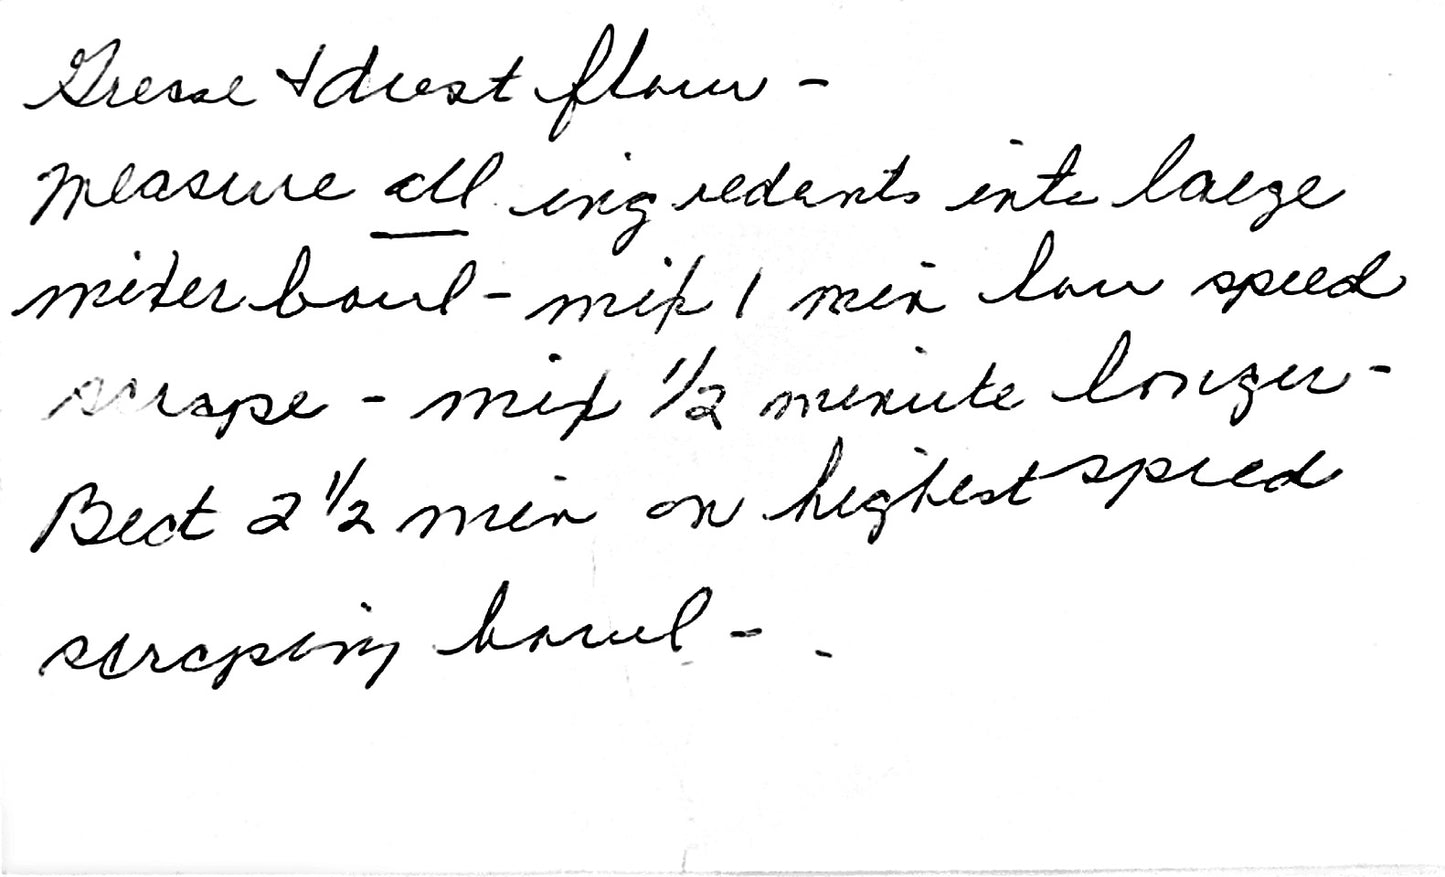 Grease + dust flour -
Measure all ingredants into large
mixer bowl - mix 1 min low speed
scrape - mix 1/2 minute longer -
Beat 2 1/2 min on highest speed
scraping bowl -